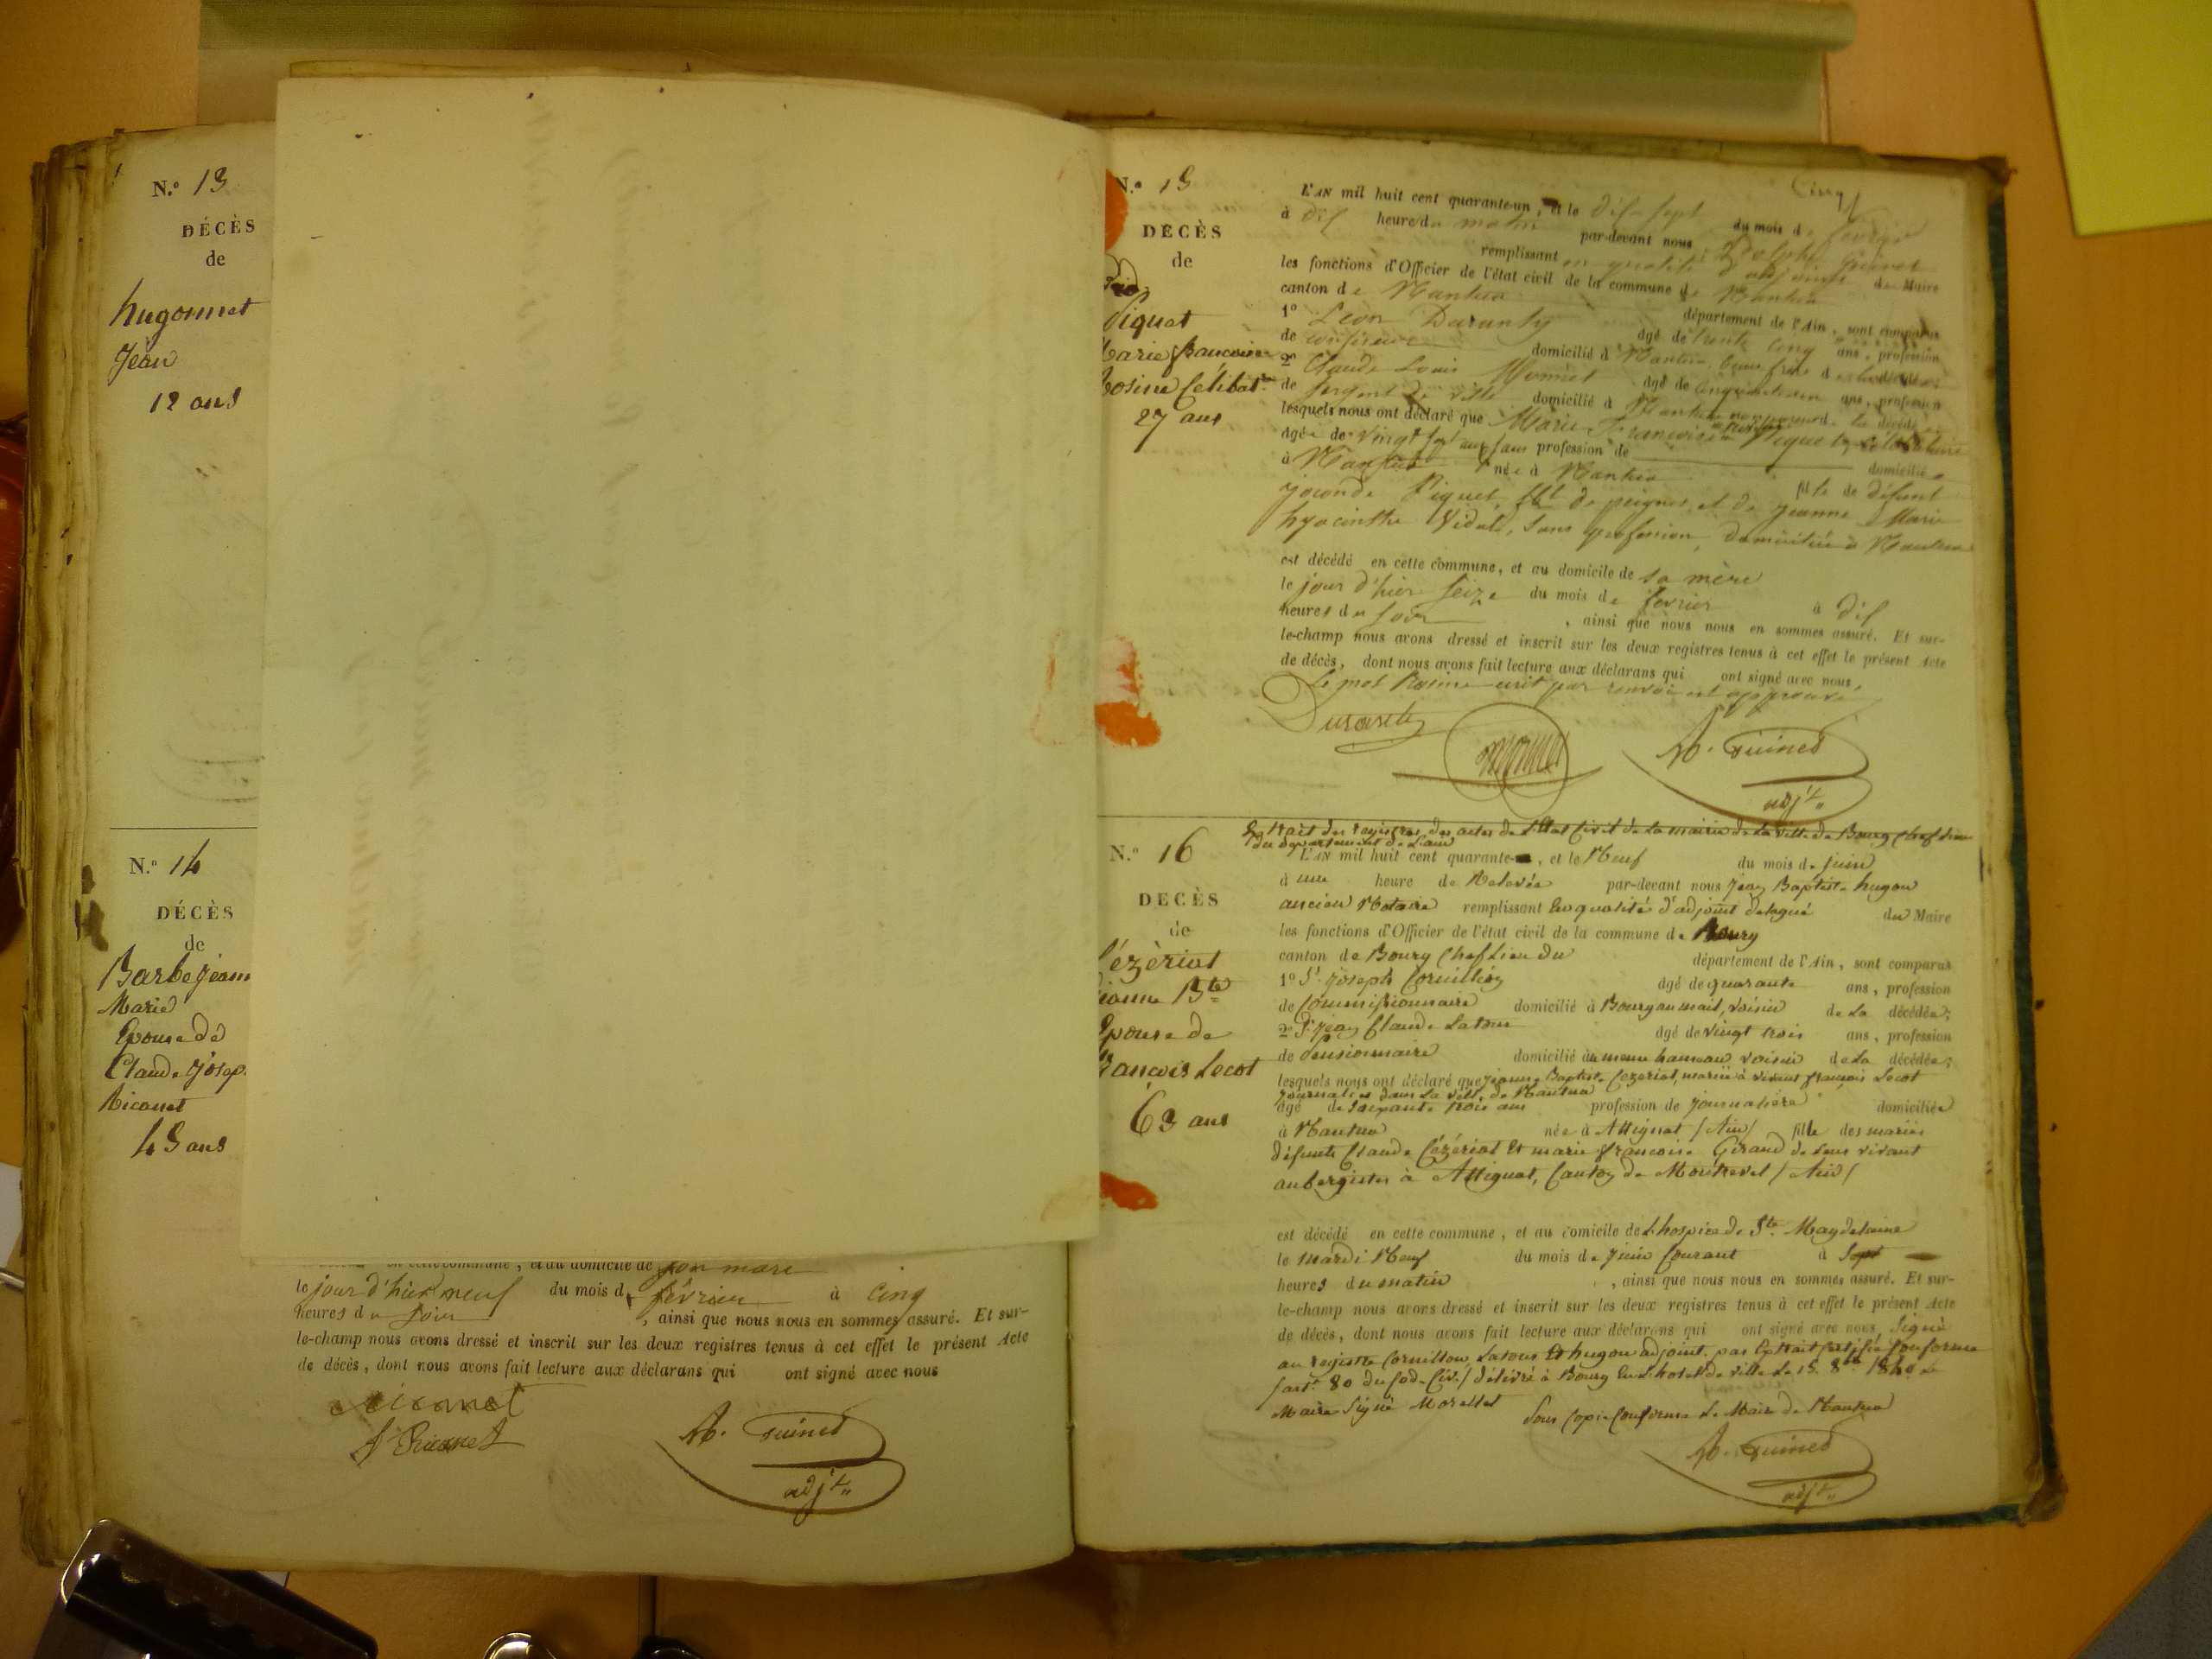 N.º 13
DÉCÈS
de
hugonnet
Jean
12 ans
N.º 14
DÉCÈS
de
Barbe Jeann
Marie
Epouse de
Claude Josep
Ricanet
43 ans
en cette commune, et au domicile de son mari
le jour d'hier neuf du mois de février à cinq
heures du soir , ainsi que nous nous en sommes assuré. Et sur-
le-champ nous avons dressé et inscrit sur les deux registres tenus à cet effet le présent Acte
de décès, dont nous avons fait lecture aux déclarans qui ont signé avec nous
A. Guinet
adj.t
Cinq
N.º 15
DÉCÈS
de
Piquet
Marie françoise
Rosine Célibat.re
27 ans
L'AN mil huit cent quarante-un, et le dix-sept du mois de février
à dix heures du matin par-devant nous Adolphe Guinet
remplissant en qualité d'adjoint du Maire
les fonctions d'Officier de l'état civil de la commune de Nantua
canton de Nantua département de l'Ain, sont comparus
1º Léon Duranty âgé de trente cinq ans, profession
de domicilié à Nantua beau frère de la décédée;
2º Claude Louis Monnet âgé de ans, profession
de sergent de ville domicilié à Nantua de la décédée
lesquels nous ont déclaré que Marie Françoise Rosine Piquet, célibataire
âgée de vingt sept ans sans profession de domiciliée
à Nantua née à Nantua fille de défunt
Joconde Piquet, fbt de peignes, et de Jeanne Marie
hyacinthe Vidal, sans profession, domiciliée à Nantua
est décédé en cette commune, et au domicile de sa mère
le jour d'hier seize du mois de février à dix
heures du soir , ainsi que nous nous en sommes assuré. Et sur-
le-champ nous avons dressé et inscrit sur les deux registres tenus à cet effet le présent Acte
de décès, dont nous avons fait lecture aux déclarans qui ont signé avec nous,
Le mot Rosine écrit par renvoi est approuvé
Duranty
Monnet
A. Guinet
adj.t
Extrait des registres des actes de l'Etat Civil de la mairie de la ville de Bourg chef lieu
du département de l'ain
N.º 16
DÉCÈS
de
Cézériat
Jeanne B.te
Epouse de
francois Lecot
63 ans
L'AN mil huit cent quarante , et le Neuf du mois de juin
à une heure de Relevée par-devant nous Jean Baptiste hugon
ancien Notaire remplissant En qualité d'adjoint délégué du Maire
les fonctions d'Officier de l'état civil de la commune de Bourg
canton de Bourg Chef Lieu du département de l'Ain, sont comparus
1º S.r Joseph Cornillon âgé de quarante ans, profession
de Commissionnaire domicilié à Bourg au mail, voisin de La décédée;
2º S.r Jean Claude Latour âgé de vingt trois ans, profession
de pensionnaire domicilié au meme hameau voisin de La décédée;
lesquels nous ont déclaré que Jeanne Baptiste Cezeriat, mariée à vivant françois Lecot
journalier dans La ville de Nantua
âgé de soixante trois ans profession de journalière domiciliée
à Nantua née à Attignat (Ain) fille des mariés
défunts Claude Cézériat Et marie françoise Giraud de leur vivant
aubergistes à Attignat, Canton de Montrevel (Ain)
est décédé en cette commune, et au domicile de L'hospice de S.te Magdelaine
le mardi Neuf du mois de Juin Courant à Sept
heures du matin , ainsi que nous nous en sommes assuré. Et sur-
le-champ nous avons dressé et inscrit sur les deux registres tenus à cet effet le présent Acte
de décès, dont nous avons fait lecture aux déclarans qui ont signé avec nous. Signé
au registre Cornillon, Latour Et hugon adjoint. par Extrait certifié Conforme
(art. 80 du Cod. Civ.) délivré à Bourg En L'hotel de ville Le 15 8.bre 1840 Le
Maire Signé Morellet Pour Copie Conforme Le Maire de Nantua
A. Guinet
adj.t